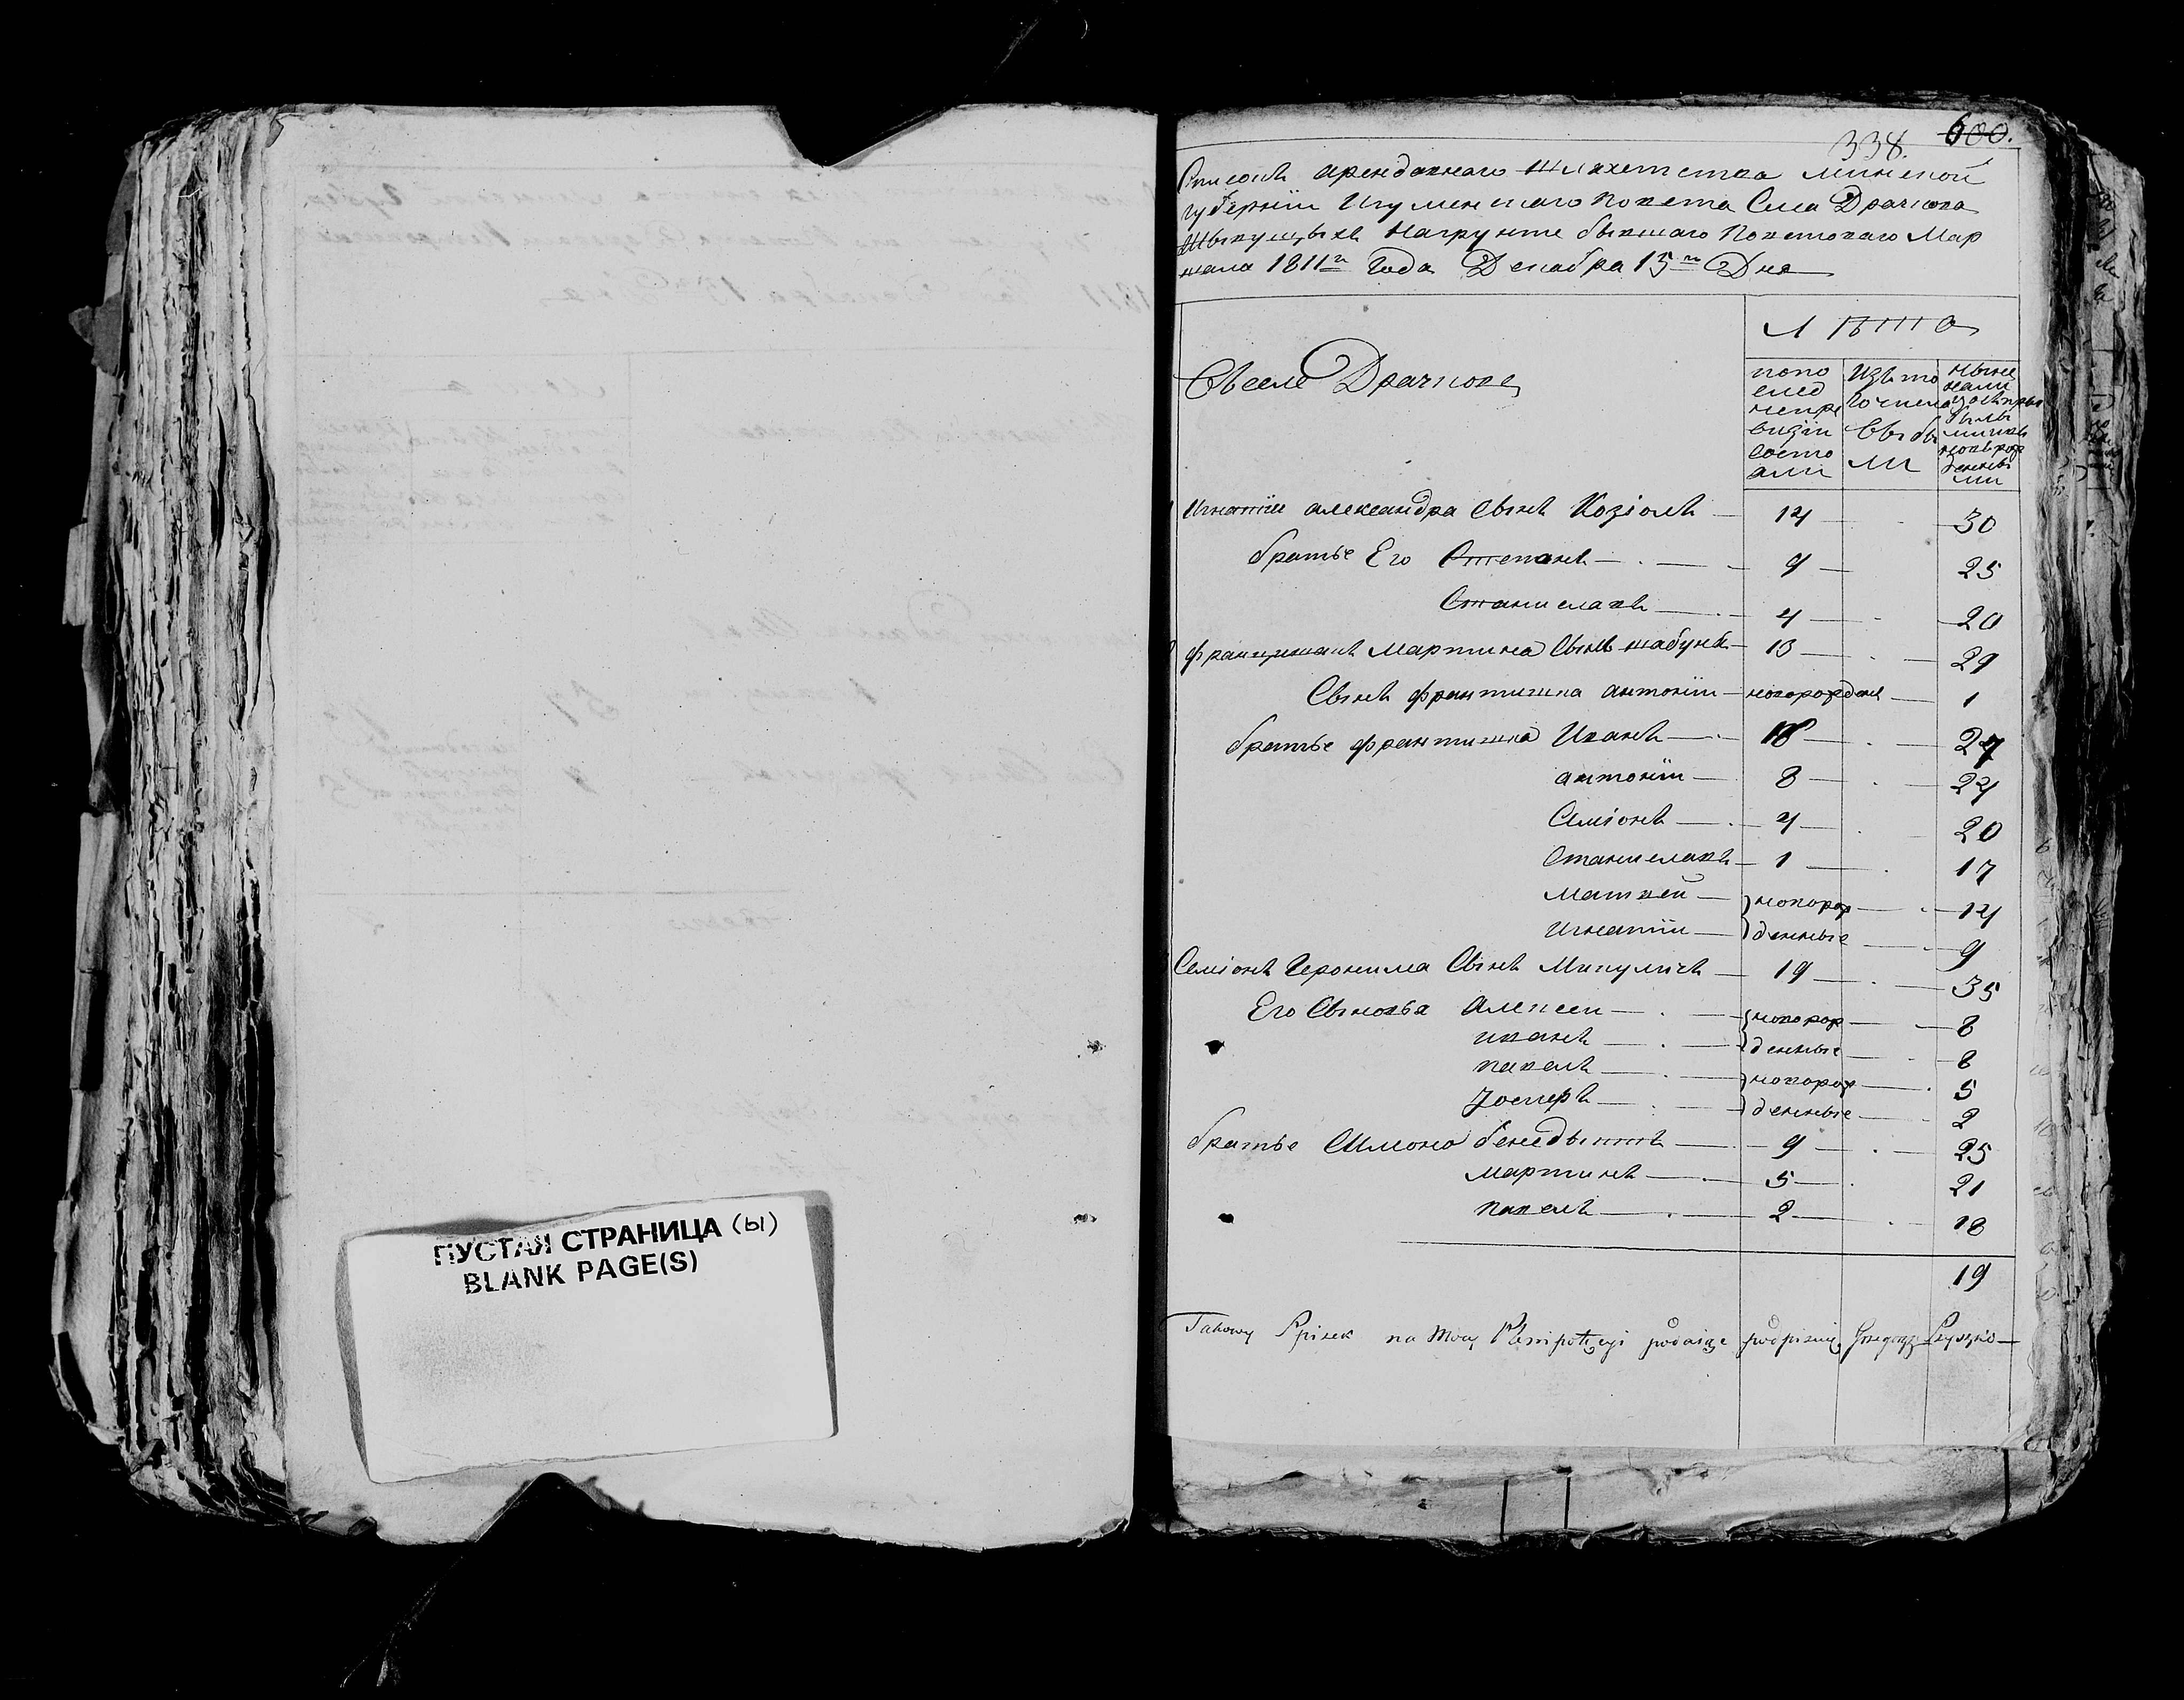 ПУСТАЯ СТРАНИЦА (ы)
BLANK PAGE(S)
600.
338.
Списокъ арендовнаго Шляхетства минской
губерніи Игуменскаго Повета Села Драчкова
Живущыхъ Нагрунте бывшаго Поветоваго Мар
шала 1811го Года Декабря 15го Дня
Лѣта
Въ селе Драчкове
попо след ней ре визіи состо яли
изъ то го числа выбы ли
ныне на лицо съ прибылыми и новорожденными
Игнатіи александра Сынъ Козіолъ — 14 — 30
братье Его Степанъ — 9 — 25
Станиславъ — 4 — 20
францишакъ Мартина Сынъ шабунѣ — 13 — 29
Сынъ франтишка антоніи — новорожденъ — 1
братье франтишка Иванъ — 27
антоніи — 8 — 24
Симіонъ — 4 — 20
Станиславъ — 1 — 17
Матвеи — новорож — 14
Игнатіи — денные — 9
Семіонъ Героним​а Сынъ Микуличъ — 19 — 35
Его Сыновья Алексеи — новорож — 8
иванъ — денные — 8
павелъ — новорож — 5
Jосиеръ — денные — 2
братье Симона бенедыктъ — 9 — 25
мартинъ — 5 — 21
павелъ — 2 — 18
19
Takowy Spisek na Mocy Plenipotęcyi podaiąc podpisuię